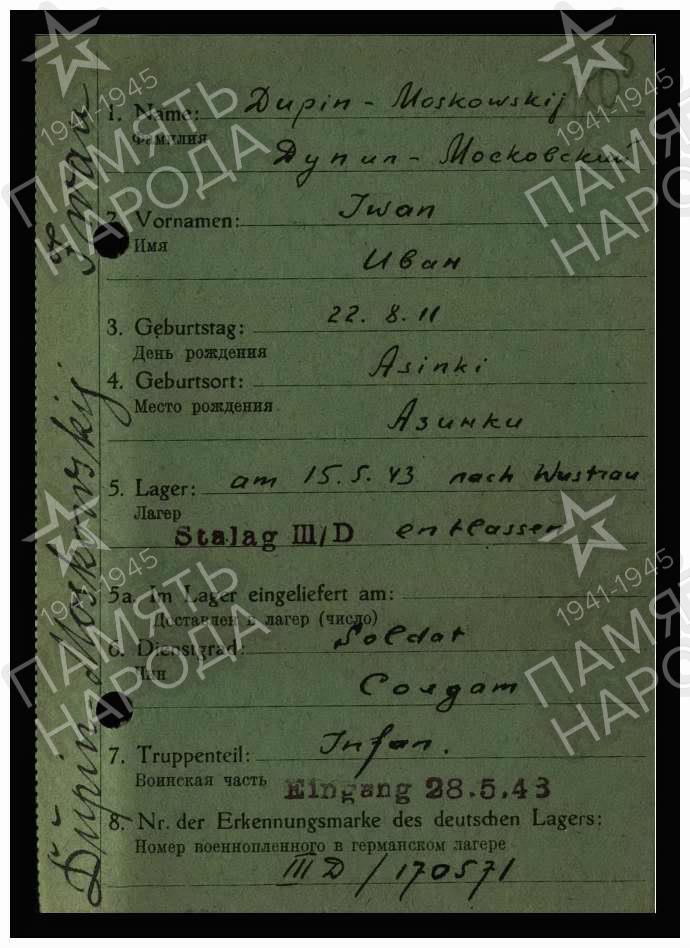 1. Name: Dupin - Moskowskij
Фамилия
Дупин - Московский
2. Vornamen: Iwan
Имя
Иван
3. Geburtstag: 22. 8. 11
День рождения
4. Geburtsort: Asinki
Место рождения
Азинки
5. Lager: am 15.5.43 nach Wustrau
Лагер
Stalag III/D entlassen
5a. Im Lager eingeliefert am:
Доставлен в лагер (число)
6. Dienstgrad: Soldat
Чин
Солдат
7. Truppenteil: Infan.
Воинская часть
Eingang 28.5.43
8. Nr. der Erkennungsmarke des deutschen Lagers:
Номер военнопленного в германском лагере
III D / 170571
Dupin - Moskowskij Iwan
1941-1945
ПАМЯТЬ
НАРОДА
1941-1945
ПАМЯТЬ
НАРОДА
1941-1945
ПАМЯТЬ
НАРОДА
1941-1945
ПАМЯТЬ
НАРОДА